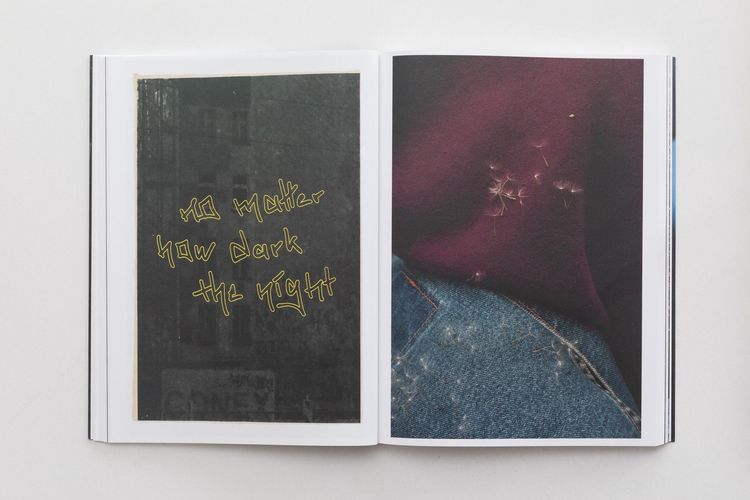 no matter
how dark
the night
CONEY